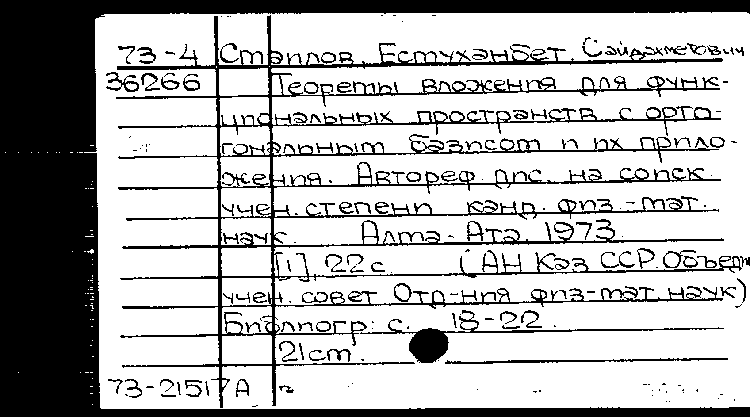 73-4 Стаилов, Естуханбет Сайдахметович
36266 Теоремы вложения для функ-
циональных пространств с орто-
гональным базисом и их прило-
жения. Автореф. дис. на соиск.
учен. степени канд. физ.-мат.
наук. Алма-Ата, 1973.
[1], 22 с. (АН Каз ССР. Объедин.
учен. совет Отд-ния физ-мат. наук)
Библиогр: с. 18-22.
21 cm.
73-21517A